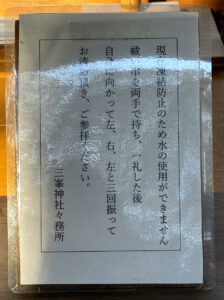 現在凍結防止のため水の使用ができません
祓串を両手で持ち、一礼した後
自身に向かって左、右、左と三回振って
お清め頂き、ご参拝ください。
三峯神社々務所